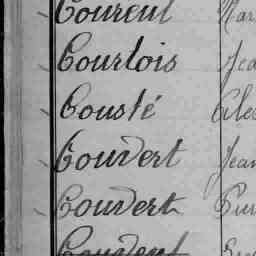 Coureul Mar
Courtois Jea
Cousté Alex
Couvert Jean
Couvert Pier